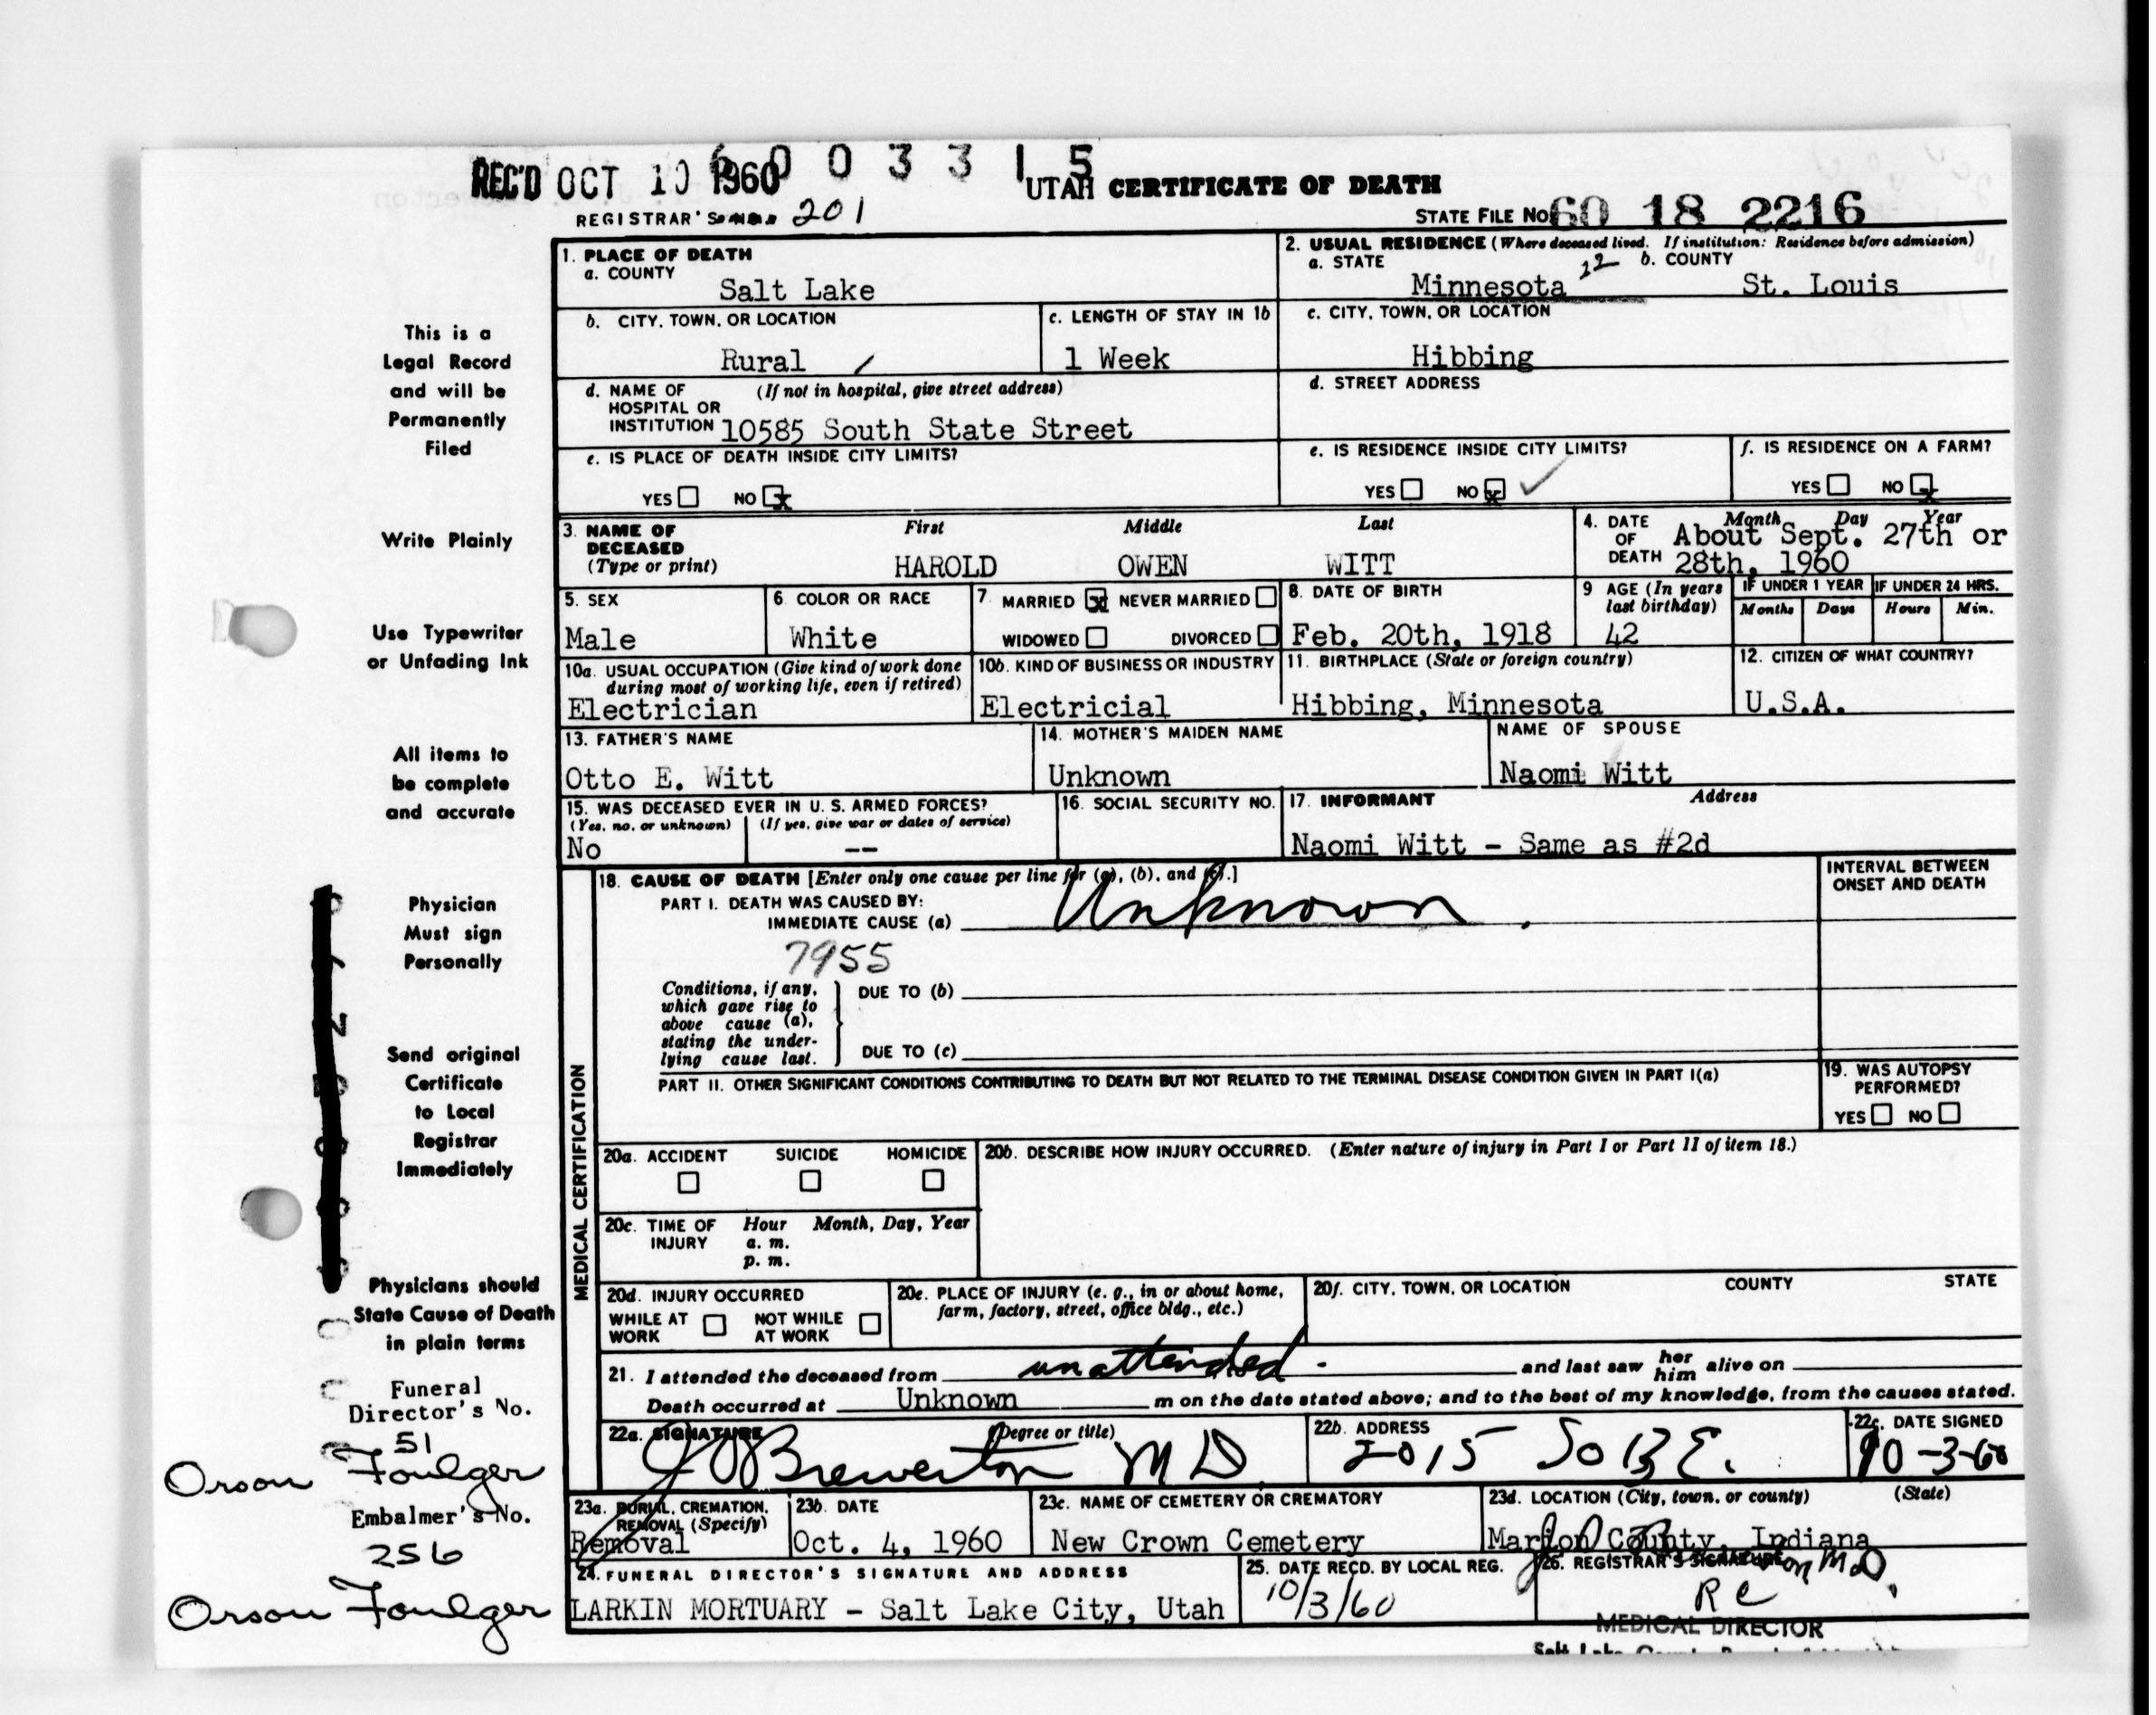 REC'D OCT 10 1960
6 0 0 3 3 1 5
UTAH CERTIFICATE OF DEATH
REGISTRAR'S 201
STATE FILE NO. 60 18 2216
1. PLACE OF DEATH
a. COUNTY
Salt Lake
2. USUAL RESIDENCE (Where deceased lived. If institution: Residence before admission)
a. STATE
Minnesota 22
b. COUNTY
St. Louis
b. CITY, TOWN, OR LOCATION
Rural /
c. LENGTH OF STAY IN 1b
1 Week
c. CITY, TOWN, OR LOCATION
Hibbing
d. NAME OF (If not in hospital, give street address)
HOSPITAL OR
INSTITUTION 10585 South State Street
d. STREET ADDRESS
e. IS PLACE OF DEATH INSIDE CITY LIMITS?
YES NO x
e. IS RESIDENCE INSIDE CITY LIMITS?
YES NO x ✓
f. IS RESIDENCE ON A FARM?
YES NO x
3. NAME OF
DECEASED
(Type or print)
First Middle Last
HAROLD OWEN WITT
4. DATE
OF
DEATH
Month Day Year
About Sept. 27th or
28th, 1960
5. SEX
Male
6. COLOR OR RACE
White
7. MARRIED x NEVER MARRIED
WIDOWED DIVORCED
8. DATE OF BIRTH
Feb. 20th, 1918
9 AGE (In years
last birthday)
42
IF UNDER 1 YEAR
Months Days
IF UNDER 24 HRS.
Hours Min.
10a. USUAL OCCUPATION (Give kind of work done
during most of working life, even if retired)
Electrician
10b. KIND OF BUSINESS OR INDUSTRY
Electricial
11. BIRTHPLACE (State or foreign country)
Hibbing, Minnesota
12. CITIZEN OF WHAT COUNTRY?
U.S.A.
13. FATHER'S NAME
Otto E. Witt
14. MOTHER'S MAIDEN NAME
Unknown
NAME OF SPOUSE
Naomi Witt
15. WAS DECEASED EVER IN U. S. ARMED FORCES?
(Yes, no, or unknown) (If yes, give war or dates of service)
No --
16. SOCIAL SECURITY NO.
17. INFORMANT Address
Naomi Witt - Same as #2d
MEDICAL CERTIFICATION
18. CAUSE OF DEATH [Enter only one cause per line for (a), (b), and (c).]
PART I. DEATH WAS CAUSED BY:
IMMEDIATE CAUSE (a) Unknown
7955
Conditions, if any,
which gave rise to
above cause (a),
stating the under-
lying cause last.
DUE TO (b)
DUE TO (c)
INTERVAL BETWEEN
ONSET AND DEATH
PART II. OTHER SIGNIFICANT CONDITIONS CONTRIBUTING TO DEATH BUT NOT RELATED TO THE TERMINAL DISEASE CONDITION GIVEN IN PART I(a)
19. WAS AUTOPSY
PERFORMED?
YES NO
20a. ACCIDENT SUICIDE HOMICIDE
20b. DESCRIBE HOW INJURY OCCURRED. (Enter nature of injury in Part I or Part II of item 18.)
20c. TIME OF Hour Month, Day, Year
INJURY a. m.
p. m.
20d. INJURY OCCURRED
WHILE AT NOT WHILE
WORK AT WORK
20e. PLACE OF INJURY (e. g., in or about home,
farm, factory, street, office bldg., etc.)
20f. CITY, TOWN, OR LOCATION COUNTY STATE
21. I attended the deceased from unattended - and last saw her him alive on
Death occurred at Unknown m on the date stated above; and to the best of my knowledge, from the causes stated.
22a. SIGNATURE (Degree or title)
Brewerton MD.
22b. ADDRESS
2015 So 13 E.
22c. DATE SIGNED
10-3-60
23a. BURIAL, CREMATION,
REMOVAL (Specify)
Removal
23b. DATE
Oct. 4, 1960
23c. NAME OF CEMETERY OR CREMATORY
New Crown Cemetery
23d. LOCATION (City, town, or county) (State)
Marion County, Indiana
24. FUNERAL DIRECTOR'S SIGNATURE AND ADDRESS
LARKIN MORTUARY - Salt Lake City, Utah
25. DATE RECD. BY LOCAL REG.
10/3/60
26. REGISTRAR'S SIGNATURE
M.D.
RC
MEDICAL DIRECTOR
This is a
Legal Record
and will be
Permanently
Filed
Write Plainly
Use Typewriter
or Unfading Ink
All items to
be complete
and accurate
Physician
Must sign
Personally
Send original
Certificate
to Local
Registrar
Immediately
Physicians should
State Cause of Death
in plain terms
Funeral
Director's No.
51
Orson Foulger
Embalmer's No.
256
Orson Foulger